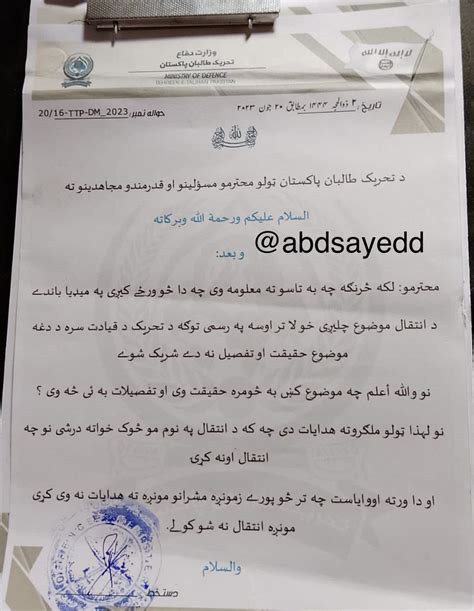 وزارت دفاع
تحریک طالبان پاکستان
MINISTRY OF DEFENCE
TEHREEK-E-TALIBAN PAKISTAN
لا اله الا الله
حواله نمبر: 20/16-TTP-DM_2023
تاریخ: ۲ ذوالحجه ۱۴۴۴ بمطابق ۲۰ جون ۲۰۲۳
د تحریک طالبان پاکستان ټولو محترمو مسؤلینو او قدرمندو مجاهدینو ته
السلام علیکم ورحمة الله وبرکاته
@abdsayedd
و بعد:
محترمو: لکه څرنګه چه به تاسو ته معلومه وی چه دا څو ورځے کیږی په میډیا باندے
د انتقال موضوع چلیږی خو لا تر اوسه په رسمی توګه د تحریک د قیادت سره د دغه
موضوع حقیقت او تفصیل نه دے شریک شوے
نو والله أعلم چه موضوع کښ به څومره حقیقت وی او تفصیلات به ئی څه وی ؟
نو لهذا ټولو ملګروته هدایات دی چه که د انتقال په نوم مو څوک خواته درشی نو چه
انتقال اونه کړی
او دا ورته اووایاست چه تر څو پورے زمونږه مشرانو مونږه ته هدایات نه وی کړی
مونږه انتقال نه شو کولے.
والسلام
دستخط